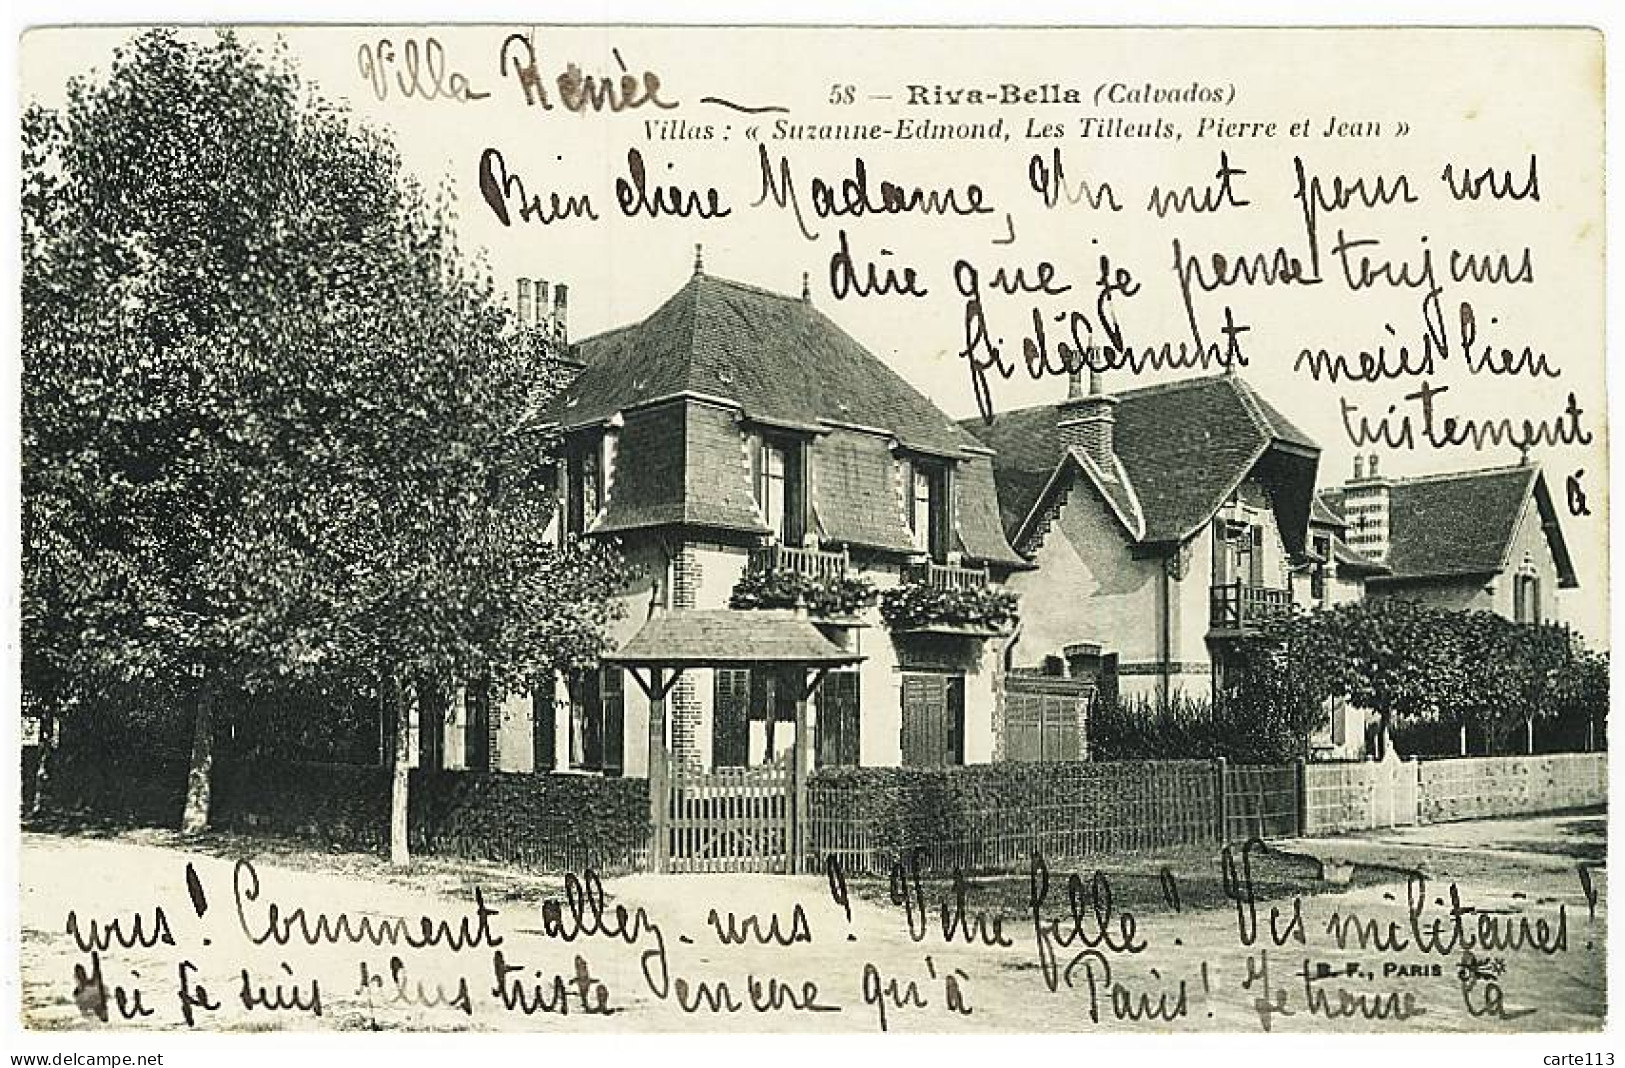 Villa Renée
58 — Riva-Bella (Calvados)
Villas : « Suzanne-Edmond, Les Tilleuls, Pierre et Jean »
Bien chère Madame, Un mot pour vous
dire que je pense toujours
fidèlement mais bien
tristement
à
vous! Comment allez-vous! Votre fille! Vos militaires!
B. F., PARIS
Ici je suis plus triste encore qu'à Paris! Je trouve la
delcampe.net
carte113